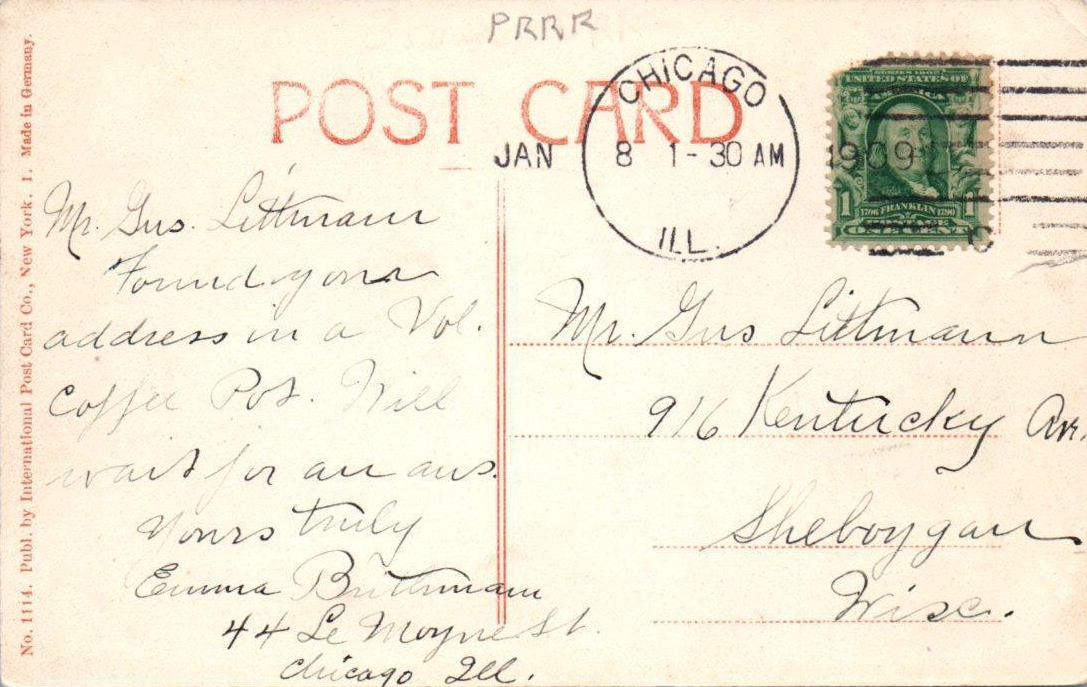 PRRR
POST CARD
CHICAGO
JAN 8 1-30 AM 1909
ILL.
SERIES 1902
UNITED STATES OF
AMERICA
1 1706 FRANKLIN 1790 1
POSTAGE
ONE CENT
Mr. Gus. Littmann
Found your
address in a Vol.
Coffee Pot. Will
wait for an ans.
Yours truly
Emma
44 Le Moyne St.
Chicago Ill.
Mr. Gus Littmann
916 Kentucky Av.
Sheboygan
Wisc.
No. 1114. Publ. by International Post Card Co., New York. I. Made in Germany.